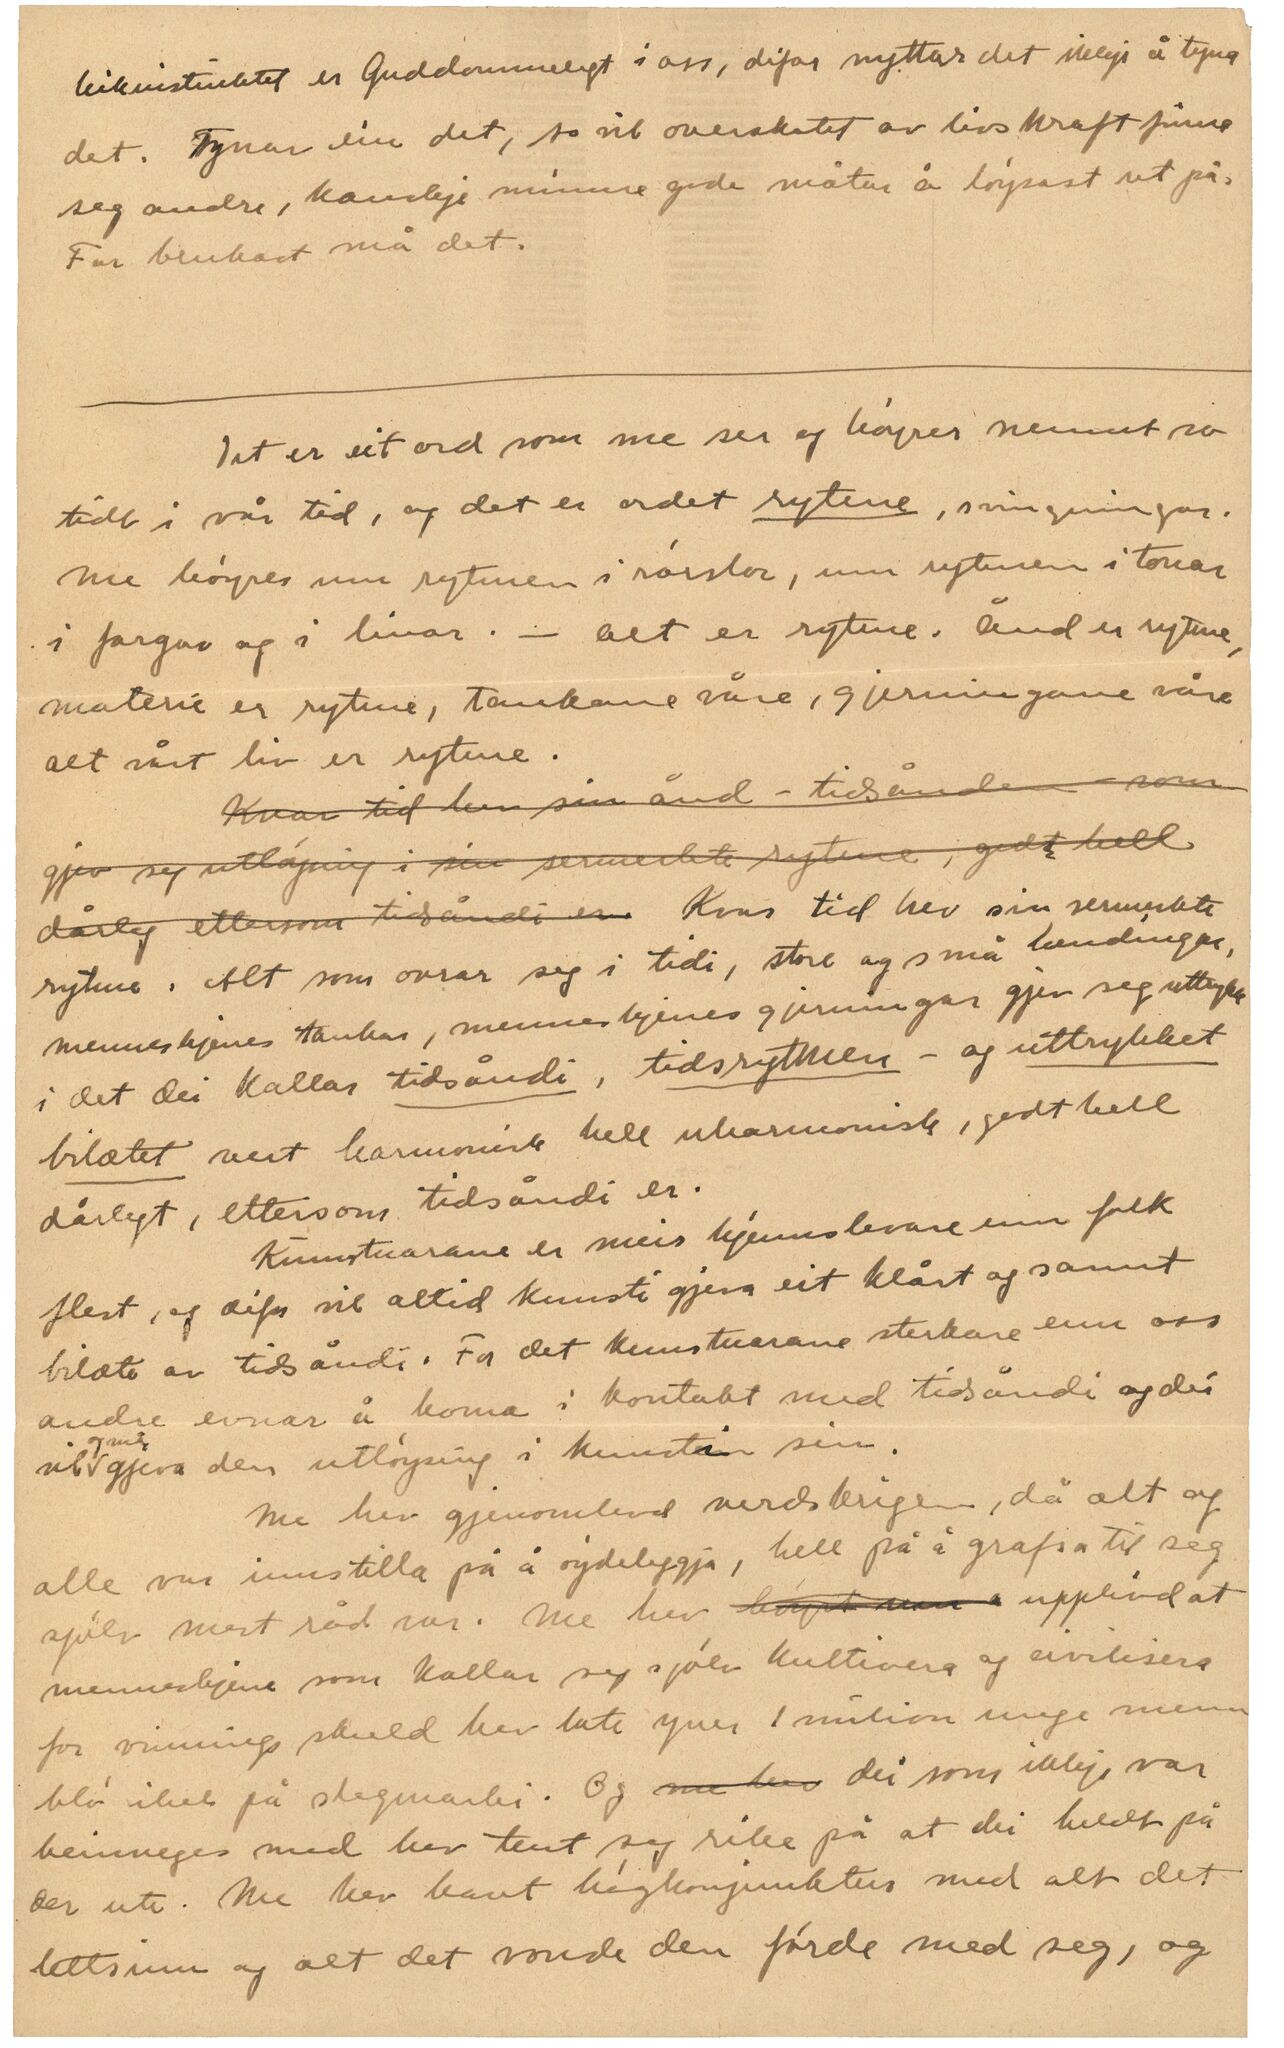 leikinstinktet er Guddommelegt i oss, difor nyttar det ikkje å tyna
det. Tynar ein det, so vil overskotet av livskraft finne
seg andre, kanskje minnre gode måtar å löysast ut på.
For brukast må det.
Det er eit ord som me ser og höyrer nemnt so
tidt i vår tid, og det er ordet rytme, svingningar.
Me höyrer um rytmen i rörslor, um rytmen i tonar
i fargar og i linor. — alt er rytme. Ånd er rytme,
materie er rytme, tankane våre, gjerningane våre
alt vårt liv er rytme.
Kvar tid hev sin ånd - tidsånden - som
gjev seg utlöysing i sin sermerkte rytme, godt hell
dårleg ettersom tidsåndi er. Kvar tid hev sin sermerkte
rytme. Alt som ovrar seg i tidi, store og små hendingar,
menneskjenes tankar, menneskjenes gjerningar gjev seg uttrykk
i det dei kallar tidsåndi, tidsrytmen - og uttrykket
bilætet vert harmonisk hell uharmonisk, godt hell
dårlegt, ettersom tidsåndi er.
Kunstnarane er meir kjennslevare enn folk
flest, og difor vil altid kunsti gjeva eit klårt og sannt
bilæte av tidsåndi. For det kunstnarane sterkare enn oss
andre evnar å koma i kontakt med tidsåndi og dei
vil og må gjeva den utlöysing i kunsten sin.
Me hev gjenomlevd verdskrigen, då alt og
alle var innstilla på å öydeleggja, hell på å grafsa til seg
sjölv mest råd var. Me hev höyrt um upplivd at
menneskjene som kallar seg sjölv kultivera og civilisera
for vinnings skuld hev late yver 1 million unge menn
blö ihel på slagmarki. Og me hev dei som ikkje var
beinveges med hev tent seg rike på at dei heldt på
der ute. Me hev havt högkonjunktur med alt det
lettsinn og alt det vonde den förde med seg, og